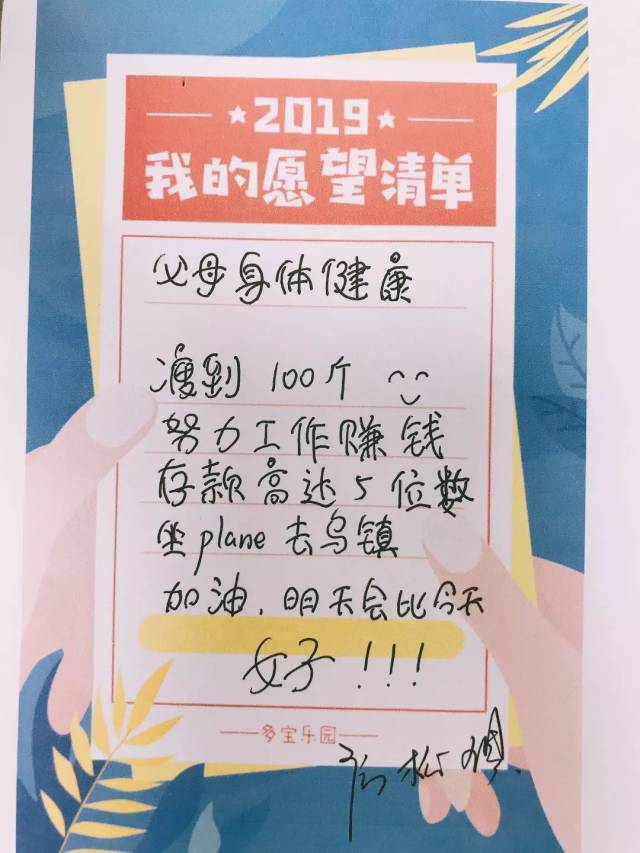 2019
我的愿望清单
父母身体健康
瘦到 100斤
努力工作赚钱
存款高达5位数
坐plane去乌镇
加油,明天会比今天
好!!!
多宝乐园